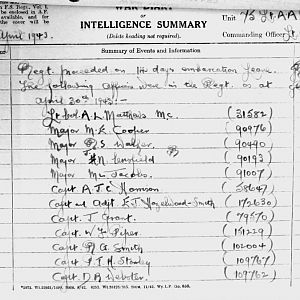 WAR DIARY
OR
INTELLIGENCE SUMMARY
(Delete heading not required).
F.S. Regt., Vol. I.
to be enclosed in A.F.
if this is not
available, and for
the cover will be
Unit
Commanding Officer Lt
April 1943.
Summary of Events and Information
Regt. proceeded on 14 days embarkation leave.
The following officers were in the Regt. as at
April 30th 1943:-
Lt. Col. A. L. Matthews Mc. (31582)
Major M. E. Cooper (90976)
Major S. Walker (90490)
Major (90193)
Major Jacobs. (91007)
Capt A J C Harrison (58647)
Capt and Adjt E J Hazelwood-Smith (172630)
Capt. J Grant. (79570)
Capt. W. J. Piper (151229)
Capt. G. Smith (102004)
Capt. J. T. H. Stanley (109767)
Capt. D. A. Webster. (109762)